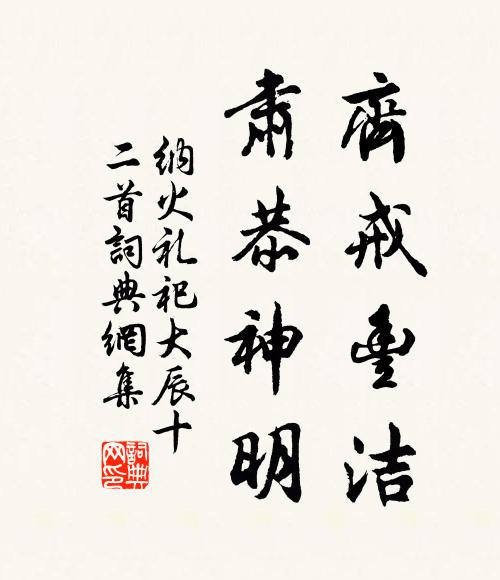 齊戒豐洁
肅恭神明
纳火礼祀大辰十
二首詞典網集
詞典
网印